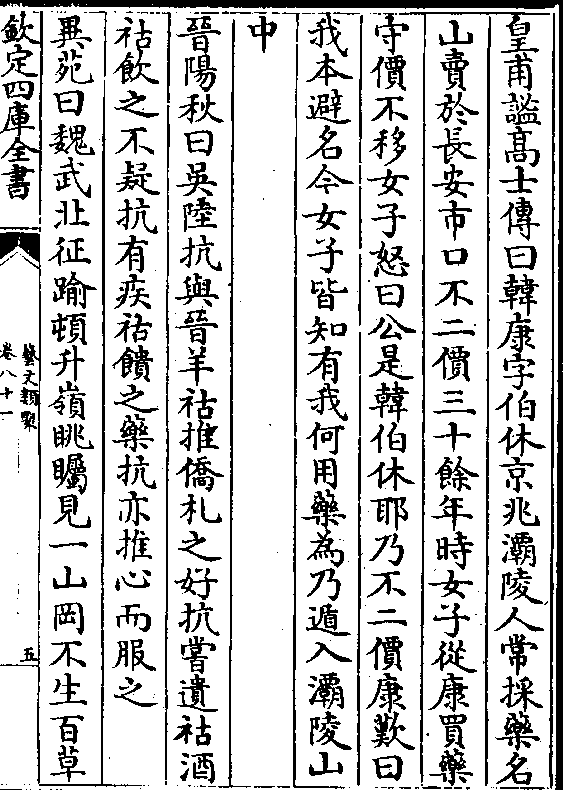 皇甫謐髙士傳曰韓康字伯休京兆灞陵人常採藥名
山賣於長安市口不二價三十餘年時女子從康買藥
守價不移女子怒曰公是韓伯休耶乃不二價康歎曰
我本避名今女子皆知有我何用藥為乃遁入灞陵山
中
晉陽秋曰吳陸抗與晉羊祜推僑札之好抗嘗遺祜酒
祜飲之不疑抗有疾祜饋之藥抗亦推心而服之
異苑曰魏武北征踰頓升嶺眺矚見一山岡不生百草
欽定四庫全書
藝文類聚
卷八十一
五